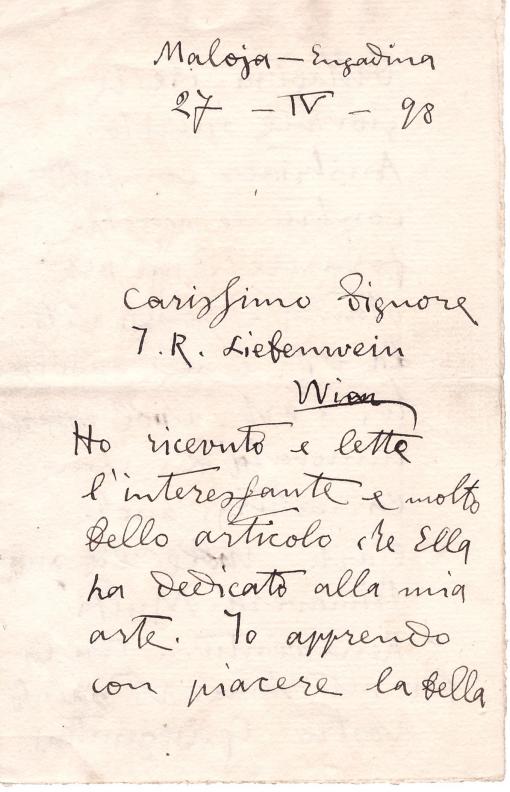 Maloja – Engadina
27 – IV – 98
Carissimo Signore
J. R. Liebenwein
Wien
Ho ricevuto e letto
l'interessante e molto
bello articolo che Ella
ha dedicato alla mia
arte. Io apprendo
con piacere la bella